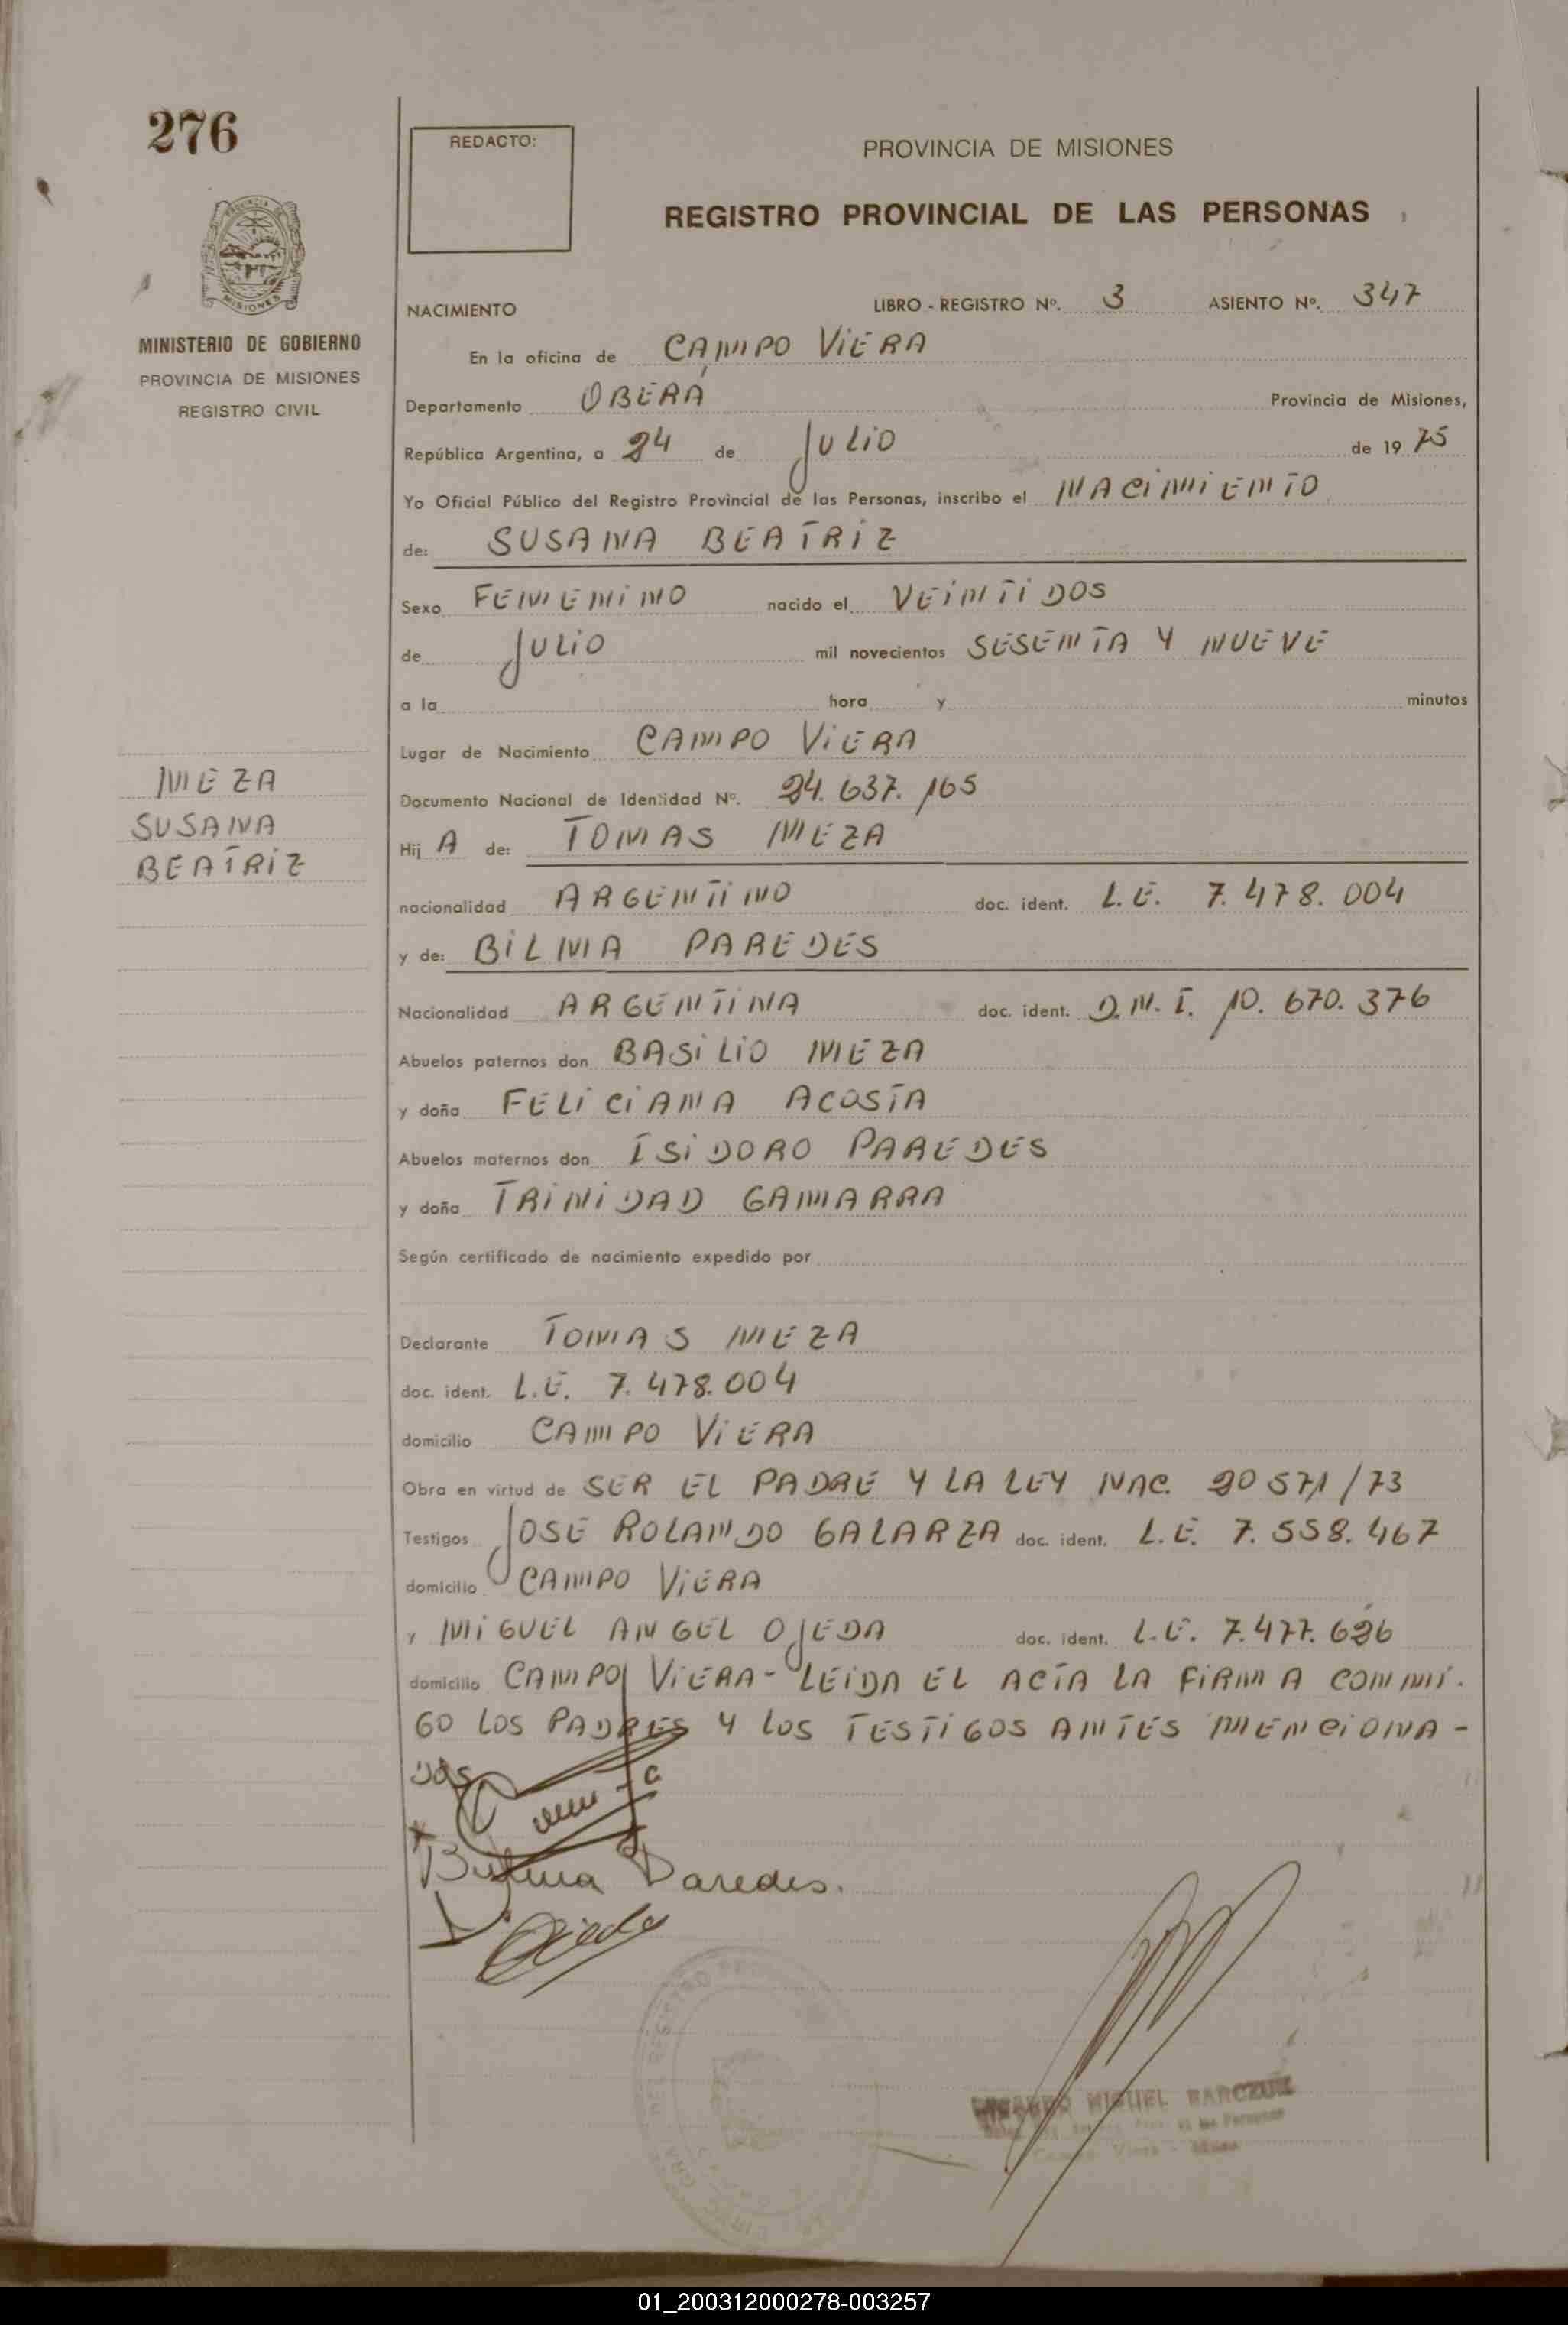 276
REDACTO:
PROVINCIA DE MISIONES
REGISTRO PROVINCIAL DE LAS PERSONAS
PROVINCIA DE
MISIONES
MINISTERIO DE GOBIERNO
PROVINCIA DE MISIONES
REGISTRO CIVIL
NACIMIENTO LIBRO - REGISTRO Nº. 3 ASIENTO Nº. 347
En la oficina de CAMPO VIERA
Departamento OBERÁ Provincia de Misiones,
República Argentina, a 24 de JULIO de 19 75
Yo Oficial Público del Registro Provincial de las Personas, inscribo el NACIMIENTO
de: SUSANA BEATRIZ
Sexo FEMENINO nacido el VEINTIDOS
de JULIO mil novecientos SESENTA Y NUEVE
a la hora y minutos
Lugar de Nacimiento CAMPO VIERA
MEZA
SUSANA
BEATRIZ
Documento Nacional de Identidad Nº. 24.637.165
Hij A de: TOMAS MEZA
nacionalidad ARGENTINO doc. ident. L.E. 7.478.004
y de: BILMA PAREDES
Nacionalidad ARGENTINA doc. ident. D.N.I. 10.670.376
Abuelos paternos don BASILIO MEZA
y doña FELICIANA ACOSTA
Abuelos maternos don ISIDORO PAREDES
y doña TRINIDAD GAMARRA
Según certificado de nacimiento expedido por
Declarante TOMAS MEZA
doc. ident. L.E. 7.478.004
domicilio CAMPO VIERA
Obra en virtud de SER EL PADRE Y LA LEY NAC. 20571/73
Testigos JOSE ROLANDO GALARZA doc. ident. L.E. 7.558.467
domicilio CAMPO VIERA
y MIGUEL ANGEL OJEDA doc. ident. L.E. 7.477.626
domicilio CAMPO VIERA - LEIDA EL ACTA LA FIRMA CONMI-
GO LOS PADRES Y LOS TESTIGOS ANTES MENCIONA-
DOS
Paredes.
Ojeda
MIGUEL BARCZUK
las Personas
Campo Viera -
01_200312000278-003257